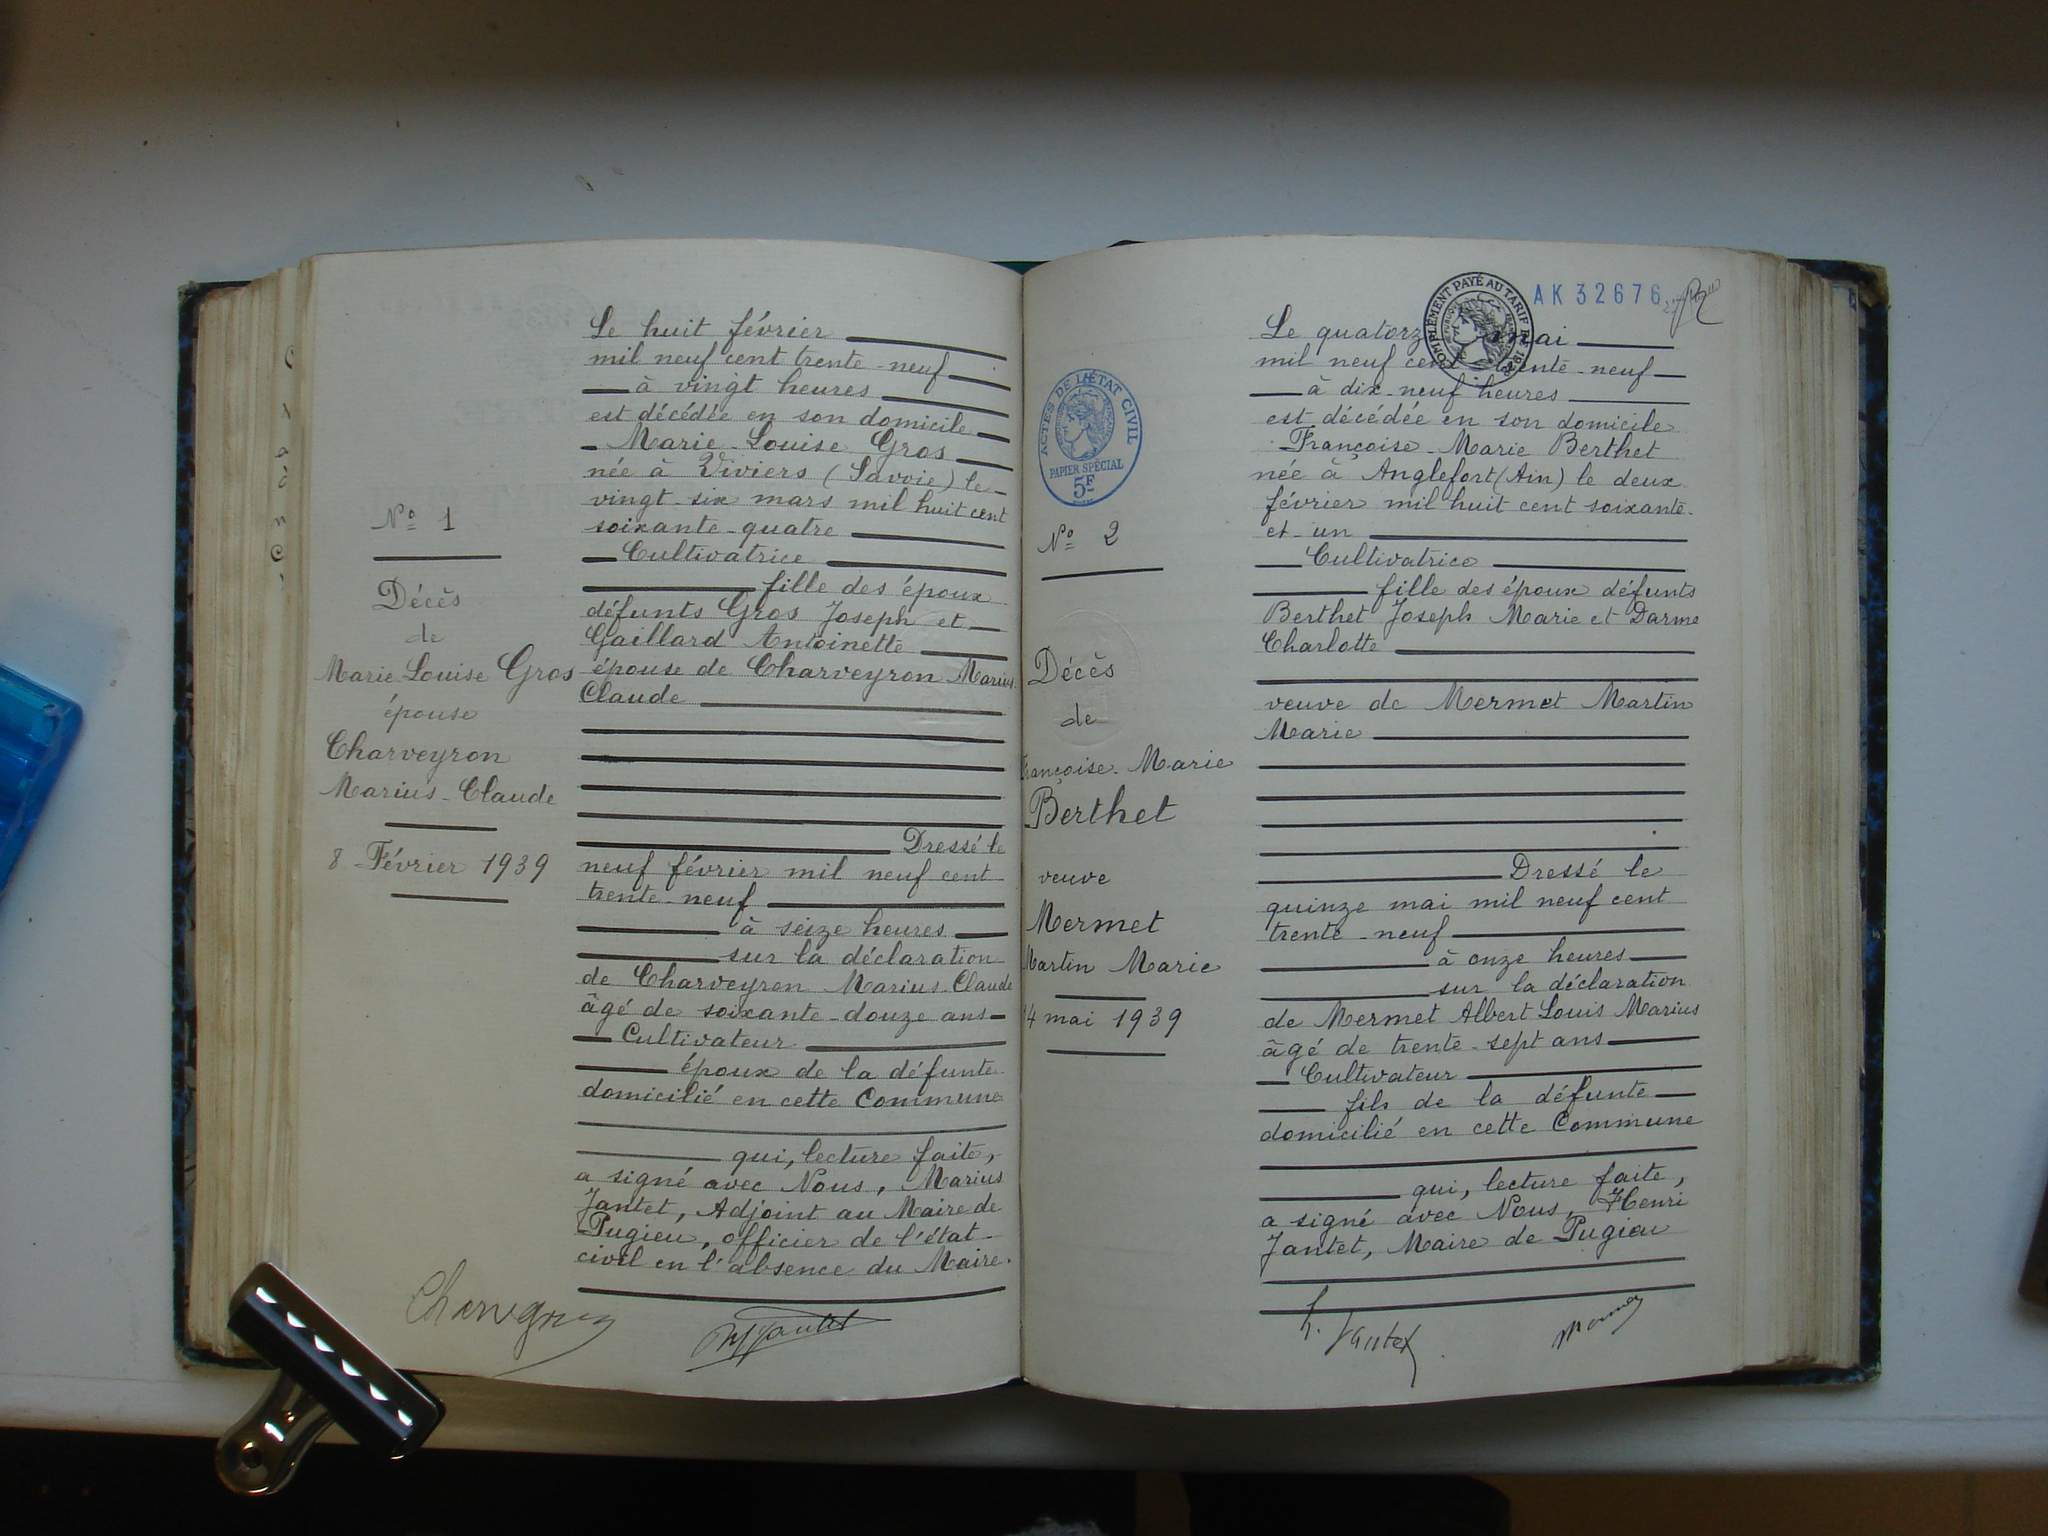 Nº 1
Décès
de
Marie Louise Gros
épouse
Charveyron
Marius-Claude
8 Février 1939
Le huit février
mil neuf cent trente-neuf
à vingt heures
est décédée en son domicile
Marie-Louise Gros
née à Viviers (Savoie) le
vingt-six mars mil huit cent
soixante-quatre
Cultivatrice
fille des époux
défunts Gros Joseph et
Gaillard Antoinette
épouse de Charveyron Marius
Claude
Dressé le
neuf février mil neuf cent
trente-neuf
à seize heures
sur la déclaration
de Charveyron Marius-Claude
âgé de soixante-douze ans
Cultivateur
époux de la défunte
domicilié en cette Commune
qui, lecture faite,
a signé avec Nous, Marius
Jantet, Adjoint au Maire de
Pugieu, officier de l'état-
civil en l'absence du Maire.
ACTES DE L'ÉTAT CIVIL
PAPIER SPÉCIAL
5F
Nº 2
Décès
de
Françoise-Marie
Berthet
veuve
Mermet
Martin Marie
14 mai 1939
COMPLÉMENT PAYÉ AU TARIF DE
AK 32676
Le quatorze mai
mil neuf cent trente-neuf
à dix-neuf heures
est décédée en son domicile
Françoise-Marie Berthet
née à Anglefort (Ain) le deux
février mil huit cent soixante-
et-un
Cultivatrice
fille des époux défunts
Berthet Joseph Marie et Darme
Charlotte
veuve de Mermet Martin
Marie
Dressé le
quinze mai mil neuf cent
trente-neuf
à onze heures
sur la déclaration
de Mermet Albert Louis Marius
âgé de trente-sept ans
Cultivateur
fils de la défunte
domicilié en cette Commune
qui, lecture faite,
a signé avec Nous, Henri
Jantet, Maire de Pugieu
H. Jantet